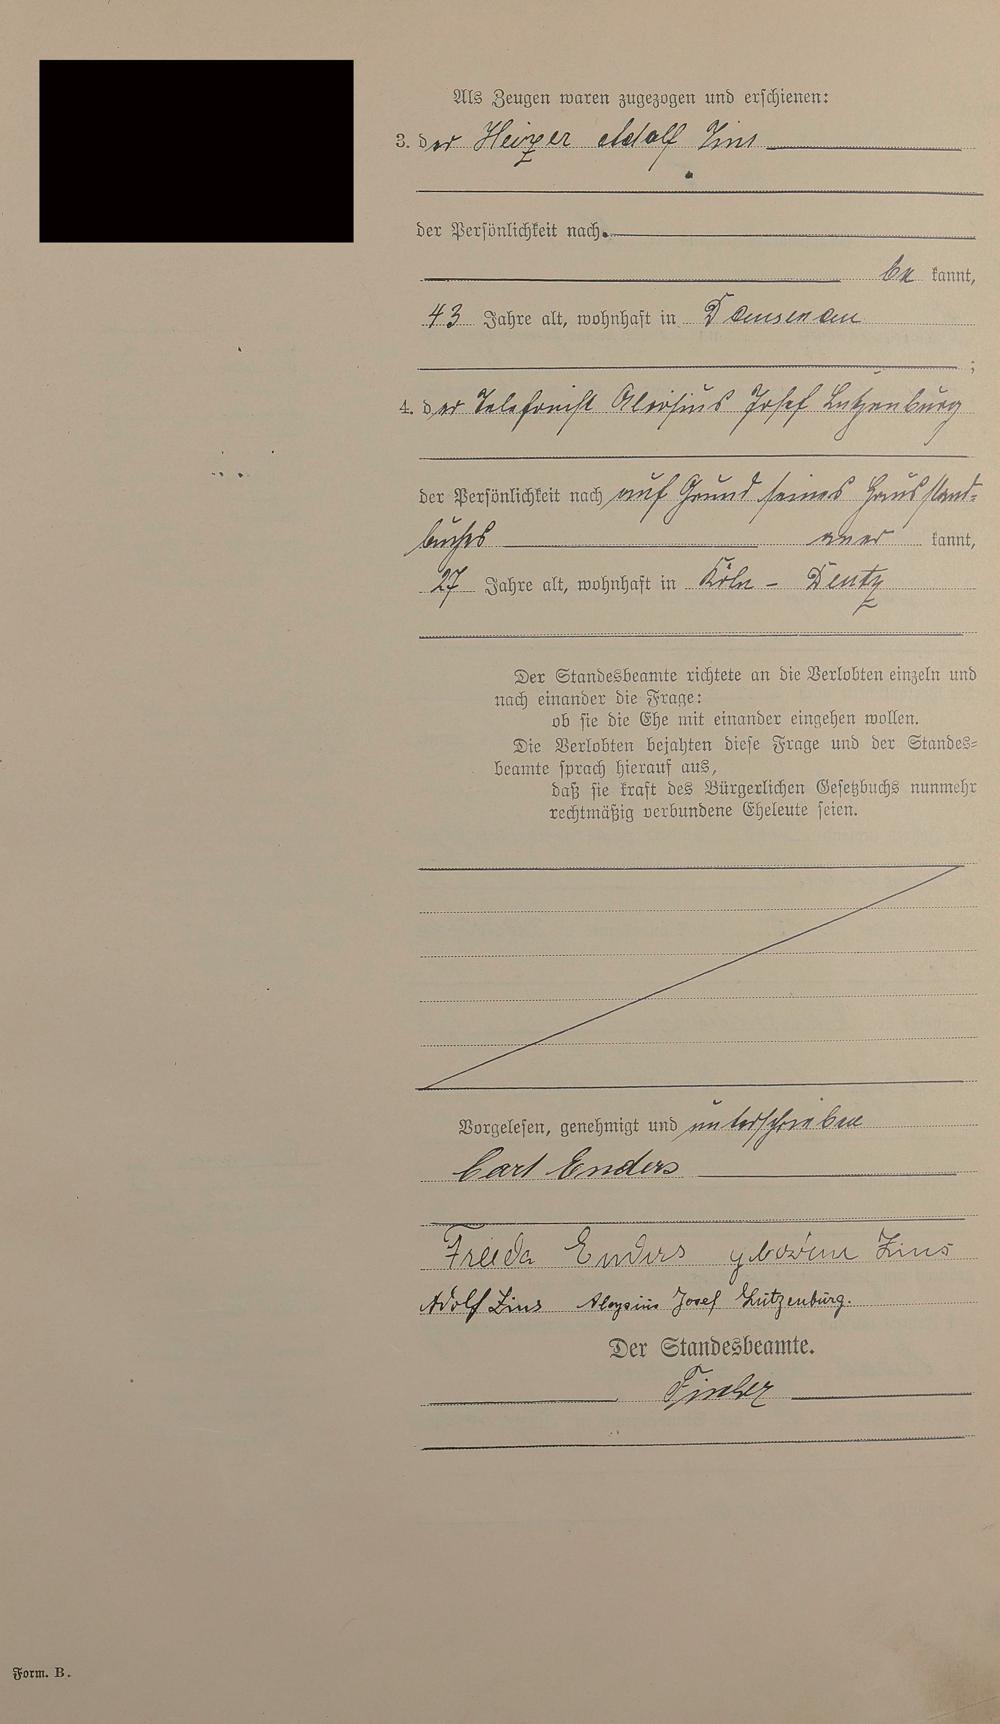 Als Zeugen waren zugezogen und erschienen:
3. der Heizer Adolf Zins
der Persönlichkeit nach
be kannt,
43 Jahre alt, wohnhaft in Dausenau
;
4. der Telefonist Aloisius Josef Lutzenburg
der Persönlichkeit nach auf Grund seines Hausstand-
buches aner kannt,
27 Jahre alt, wohnhaft in Köln - Deutz
Der Standesbeamte richtete an die Verlobten einzeln und
nach einander die Frage:
ob sie die Ehe mit einander eingehen wollen.
Die Verlobten bejahten diese Frage und der Standes-
beamte sprach hierauf aus,
daß sie kraft des Bürgerlichen Gesetzbuchs nunmehr
rechtmäßig verbundene Eheleute seien.
Vorgelesen, genehmigt und unterschrieben
Carl Enders
Frieda Enders geborene Zins
Adolf Zins Aloysius Josef Lutzenburg.
Der Standesbeamte.
Form. B.